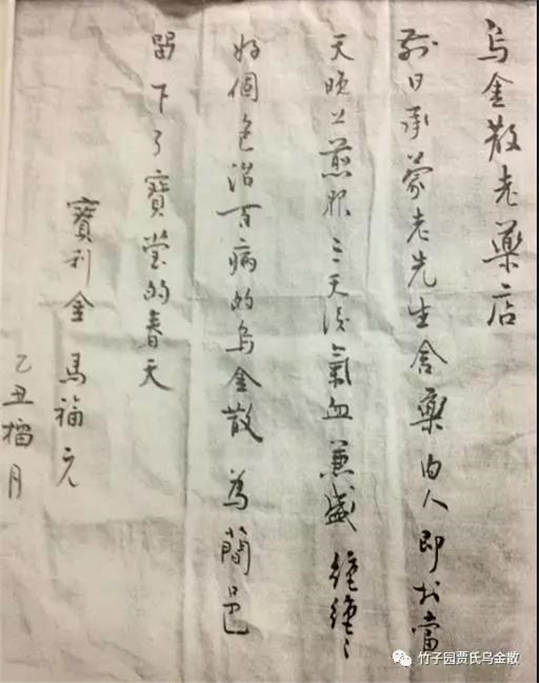 烏金散老藥店
前日承蒙老先生舍藥内人即於當
天晚上煎服三天後氣血兼盛
好個包治百病的烏金散 為簡邑
留下了寶瑩的春天
寶利金 馬福元
乙丑榴月
竹子园贾氏乌金散